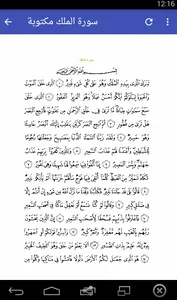 12:16
سورة الملك مكتوبة
سورة الملك
بِسْمِ اللَّهِ الرَّحْمَنِ الرَّحِيمِ
تَبَارَكَ الَّذِي بِيَدِهِ الْمُلْكُ وَهُوَ عَلَى كُلِّ شَيْءٍ قَدِيرٌ ﴿١﴾ الَّذِي خَلَقَ الْمَوْتَ
وَالْحَيَاةَ لِيَبْلُوَكُمْ أَيُّكُمْ أَحْسَنُ عَمَلًا وَهُوَ الْعَزِيزُ الْغَفُورُ ﴿٢﴾ الَّذِي خَلَقَ
سَبْعَ سَمَاوَاتٍ طِبَاقًا مَا تَرَى فِي خَلْقِ الرَّحْمَنِ مِنْ تَفَاوُتٍ فَارْجِعِ الْبَصَرَ
هَلْ تَرَى مِنْ فُطُورٍ ﴿٣﴾ ثُمَّ ارْجِعِ الْبَصَرَ كَرَّتَيْنِ يَنْقَلِبْ إِلَيْكَ الْبَصَرُ خَاسِئًا
وَهُوَ حَسِيرٌ ﴿٤﴾ وَلَقَدْ زَيَّنَّا السَّمَاءَ الدُّنْيَا بِمَصَابِيحَ وَجَعَلْنَاهَا رُجُومًا
لِلشَّيَاطِينِ وَأَعْتَدْنَا لَهُمْ عَذَابَ السَّعِيرِ ﴿٥﴾ وَلِلَّذِينَ كَفَرُوا بِرَبِّهِمْ عَذَابُ
جَهَنَّمَ وَبِئْسَ الْمَصِيرُ ﴿٦﴾ إِذَا أُلْقُوا فِيهَا سَمِعُوا لَهَا شَهِيقًا وَهِيَ تَفُورُ ﴿٧﴾
تَكَادُ تَمَيَّزُ مِنَ الْغَيْظِ كُلَّمَا أُلْقِيَ فِيهَا فَوْجٌ سَأَلَهُمْ خَزَنَتُهَا أَلَمْ يَأْتِكُمْ نَذِيرٌ ﴿٨﴾
قَالُوا بَلَى قَدْ جَاءَنَا نَذِيرٌ فَكَذَّبْنَا وَقُلْنَا مَا نَزَّلَ اللَّهُ مِنْ شَيْءٍ إِنْ أَنْتُمْ إِلَّا
فِي ضَلَالٍ كَبِيرٍ ﴿٩﴾ وَقَالُوا لَوْ كُنَّا نَسْمَعُ أَوْ نَعْقِلُ مَا كُنَّا فِي أَصْحَابِ السَّعِيرِ ﴿١٠﴾
فَاعْتَرَفُوا بِذَنْبِهِمْ فَسُحْقًا لِأَصْحَابِ السَّعِيرِ ﴿١١﴾ إِنَّ الَّذِينَ يَخْشَوْنَ
رَبَّهُمْ بِالْغَيْبِ لَهُمْ مَغْفِرَةٌ وَأَجْرٌ كَبِيرٌ ﴿١٢﴾ وَأَسِرُّوا قَوْلَكُمْ أَوِ اجْهَرُوا بِهِ
إِنَّهُ عَلِيمٌ بِذَاتِ الصُّدُورِ ﴿١٣﴾ أَلَا يَعْلَمُ مَنْ خَلَقَ وَهُوَ اللَّطِيفُ الْخَبِيرُ ﴿١٤﴾
هُوَ الَّذِي جَعَلَ لَكُمُ الْأَرْضَ ذَلُولًا فَامْشُوا فِي مَنَاكِبِهَا وَكُلُوا مِنْ